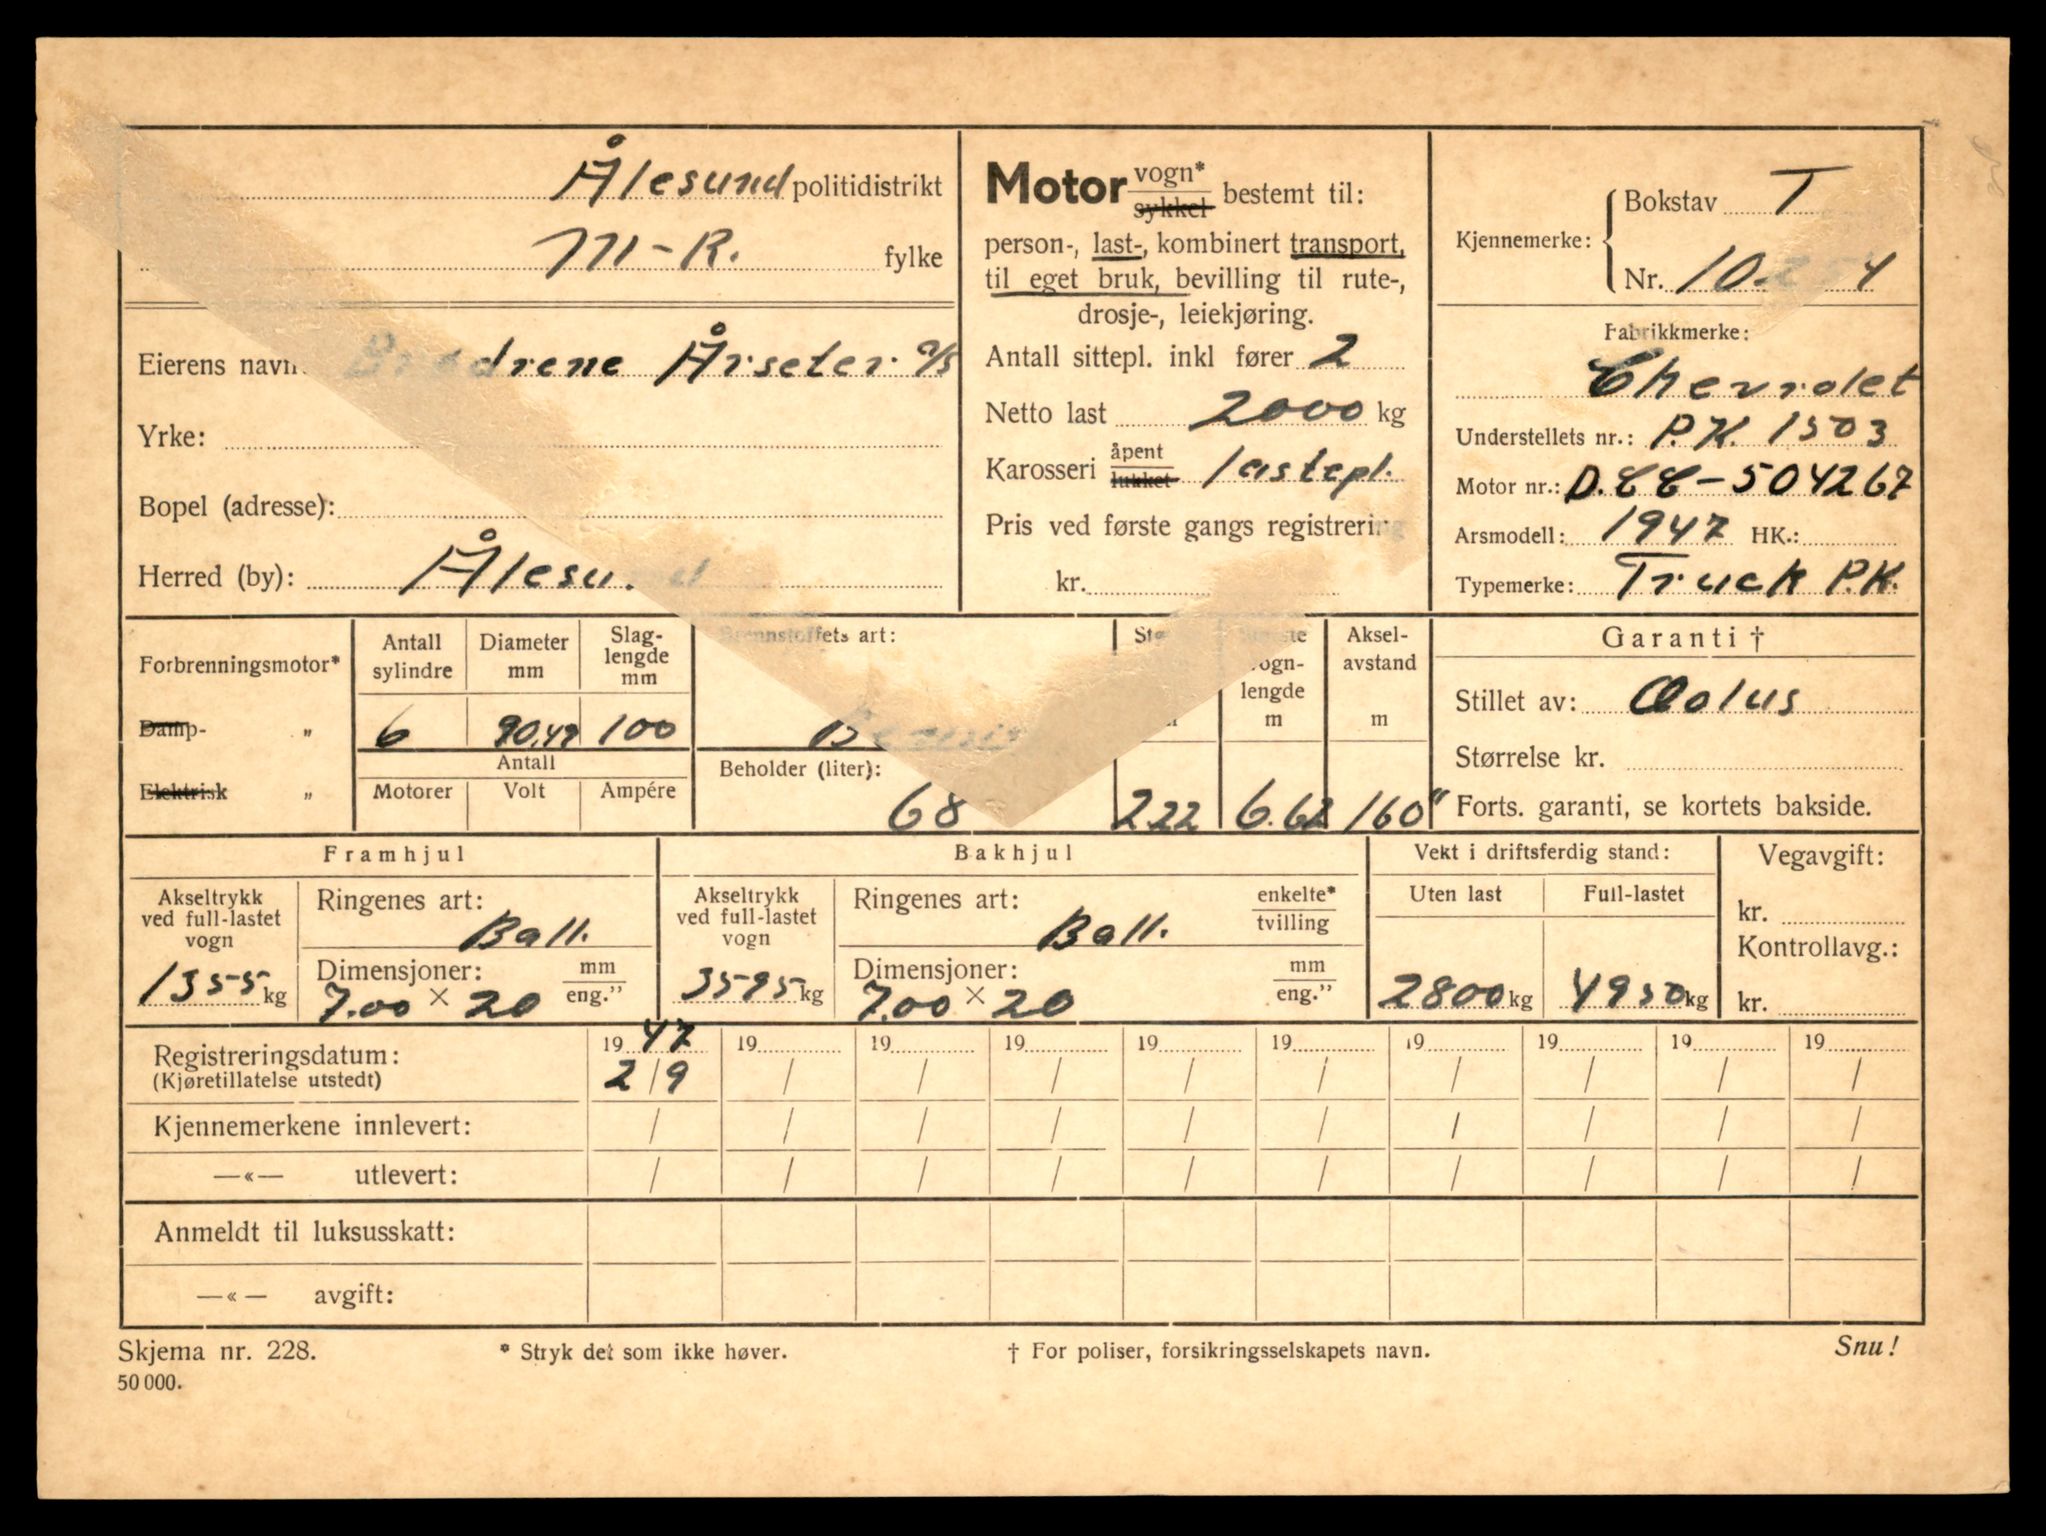 Ålesund politidistrikt
M-R. fylke
Eierens navn: Brødrene Årseter A/S
Yrke:
Bopel (adresse):
Herred (by): Ålesund
Motor vogn* sykkel bestemt til:
person-, last-, kombinert transport,
til eget bruk, bevilling til rute-,
drosje-, leiekjøring.
Antall sittepl. inkl fører 2
Netto last 2000 kg
Karosseri åpent lukket lastepl.
Pris ved første gangs registrering
kr.
Kjennemerke: Bokstav T
Nr. 10.254
Fabrikkmerke:
Chevrolet
Understellets nr.: P.K. 1503
Motor nr.: D.CC-504267
Arsmodell: 1947 HK.:
Typemerke: Truck P.K.
Forbrenningsmotor*
Damp- „
Elektrisk „
Antall sylindre
Diameter mm
Slag-lengde mm
6 90.49 100
Antall
Motorer Volt Ampére
Brennstoffets art:
Bensin
Beholder (liter):
68
2.22
vogn-
lengde
m
6.62
Aksel-
avstand
m
160"
Garanti †
Stillet av: Æolus
Størrelse kr.
Forts. garanti, se kortets bakside.
Framhjul
Akseltrykk
ved full-lastet
vogn
1355 kg
Ringenes art:
Ball.
Dimensjoner: mm eng.”
7.00 × 20
Bakhjul
Akseltrykk
ved full-lastet
vogn
3595 kg
Ringenes art: enkelte* tvilling
Ball.
Dimensjoner: mm eng.”
7.00 × 20
Vekt i driftsferdig stand:
Uten last Full-lastet
2800 kg 4950 kg
Vegavgift:
kr.
Kontrollavg.:
kr.
Registreringsdatum: 19 47 19 19 19 19 19 19 19 19 19
(Kjøretillatelse utstedt) 2/9 / / / / / / / / /
Kjennemerkene innlevert: / / / / / / / / / /
—«— utlevert: / / / / / / / / / /
Anmeldt til luksusskatt:
—«— avgift:
Skjema nr. 228. * Stryk det som ikke høver. † For poliser, forsikringsselskapets navn. Snu!
50 000.